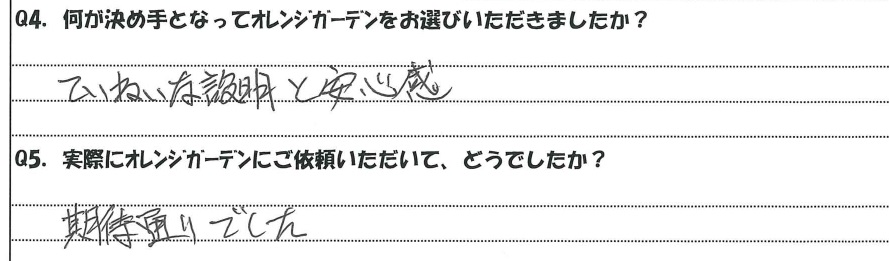 Q4. 何が決め手となってオレンジガーデンをお選びいただきましたか？
ていねいな説明と安心感
Q5. 実際にオレンジガーデンにご依頼いただいて、どうでしたか？
期待通りでした